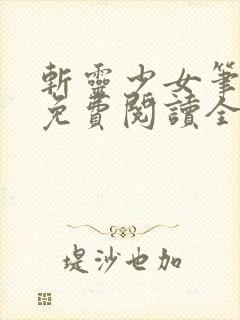 斬靈少女筆
免費閱讀全
堤沙也加